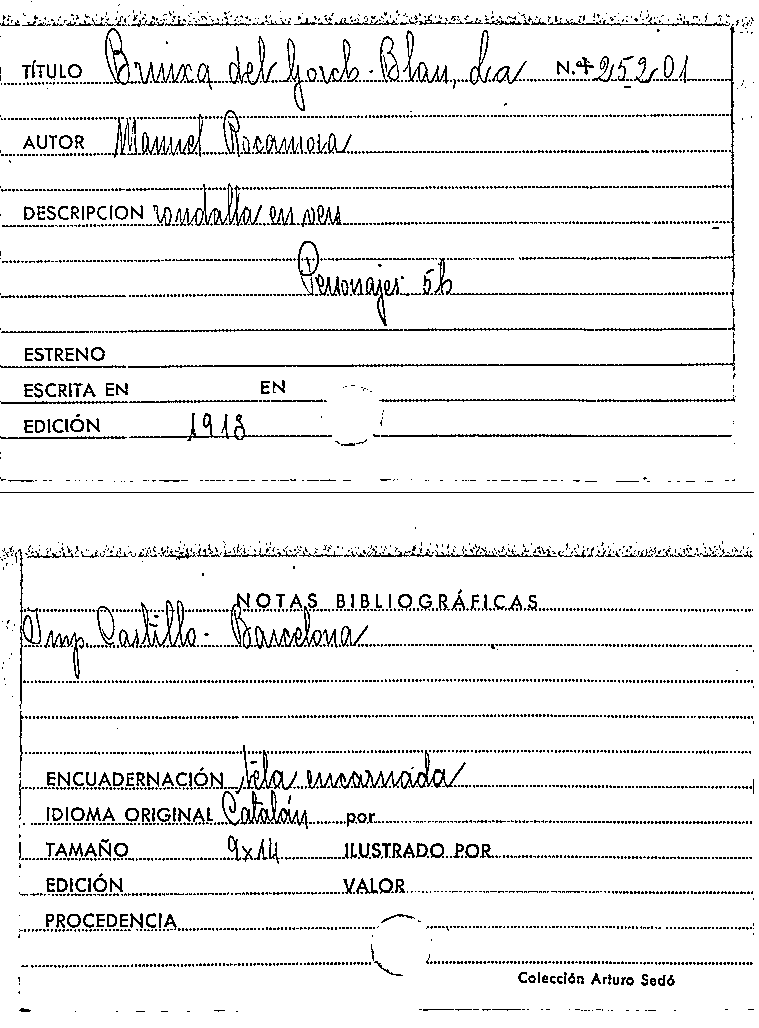 TÍTULO Bruixa del Gorch-Blau, La N.º 25201
AUTOR Manuel Rocamora
DESCRIPCION rondalla en vers
Personajes
ESTRENO
ESCRITA EN EN
EDICIÓN 1918
NOTAS BIBLIOGRÁFICAS
Imp. Castillo - Barcelona
ENCUADERNACIÓN tela encarnada
IDIOMA ORIGINAL Catalán por
TAMAÑO 9x14 ILUSTRADO POR
EDICIÓN VALOR
PROCEDENCIA
Colección Arturo Sedó